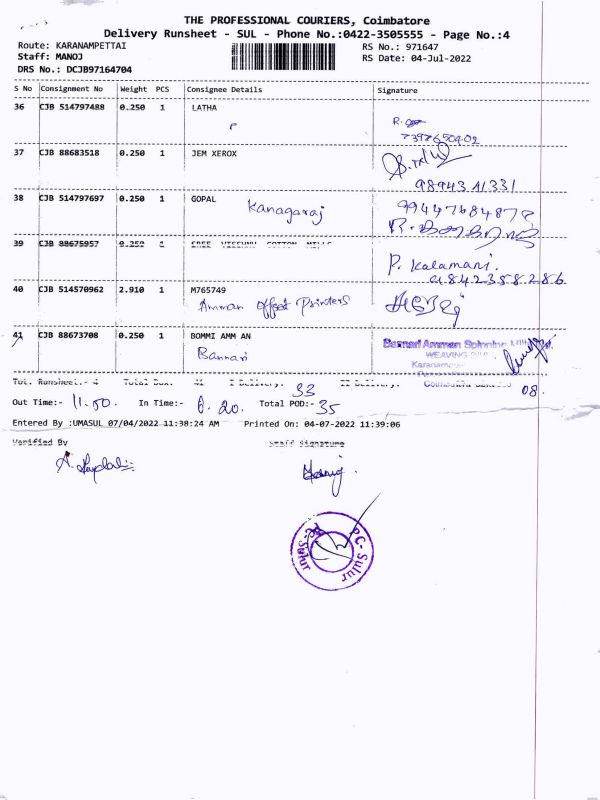 THE PROFESSIONAL COURIERS, Coimbatore
Delivery Runsheet - SUL - Phone No.:0422-3505555 - Page No.:4
Route: KARANAMPETTAI
RS No.: 971647
Staff: MANOJ
RS Date: 04-Jul-2022
DRS No.: DCJB97164704
S No Consignment No Weight PCS Consignee Details Signature
36 CJB 514797488 0.250 1 LATHA
R.
37 CJB 88683518 0.250 1 JEM XEROX
98943 41331
38 CJB 514797697 0.250 1 GOPAL
Kanagaraj
39 CJB 88675957 0.250 1 SREE VISHNU COTTON MILLS
P. Kalamani.
9842358286
40 CJB 514570962 2.910 1 M765749
Amman Offset Printers
41 CJB 88673708 0.250 1 BOMMI AMM AN
Bannari
Bannari Amman Spinning
WEAVING
Tot. Runsheet:- 4 Total Box: 41 I Delivery: 33 II Delivery:
08.
Out Time:- 11.50. In Time:- 6.20. Total POD:- 35
Entered By :UMASUL 07/04/2022 11:38:24 AM Printed On: 04-07-2022 11:39:06
Verified By Staff Signature
PC-Sulur
PC-Sulur